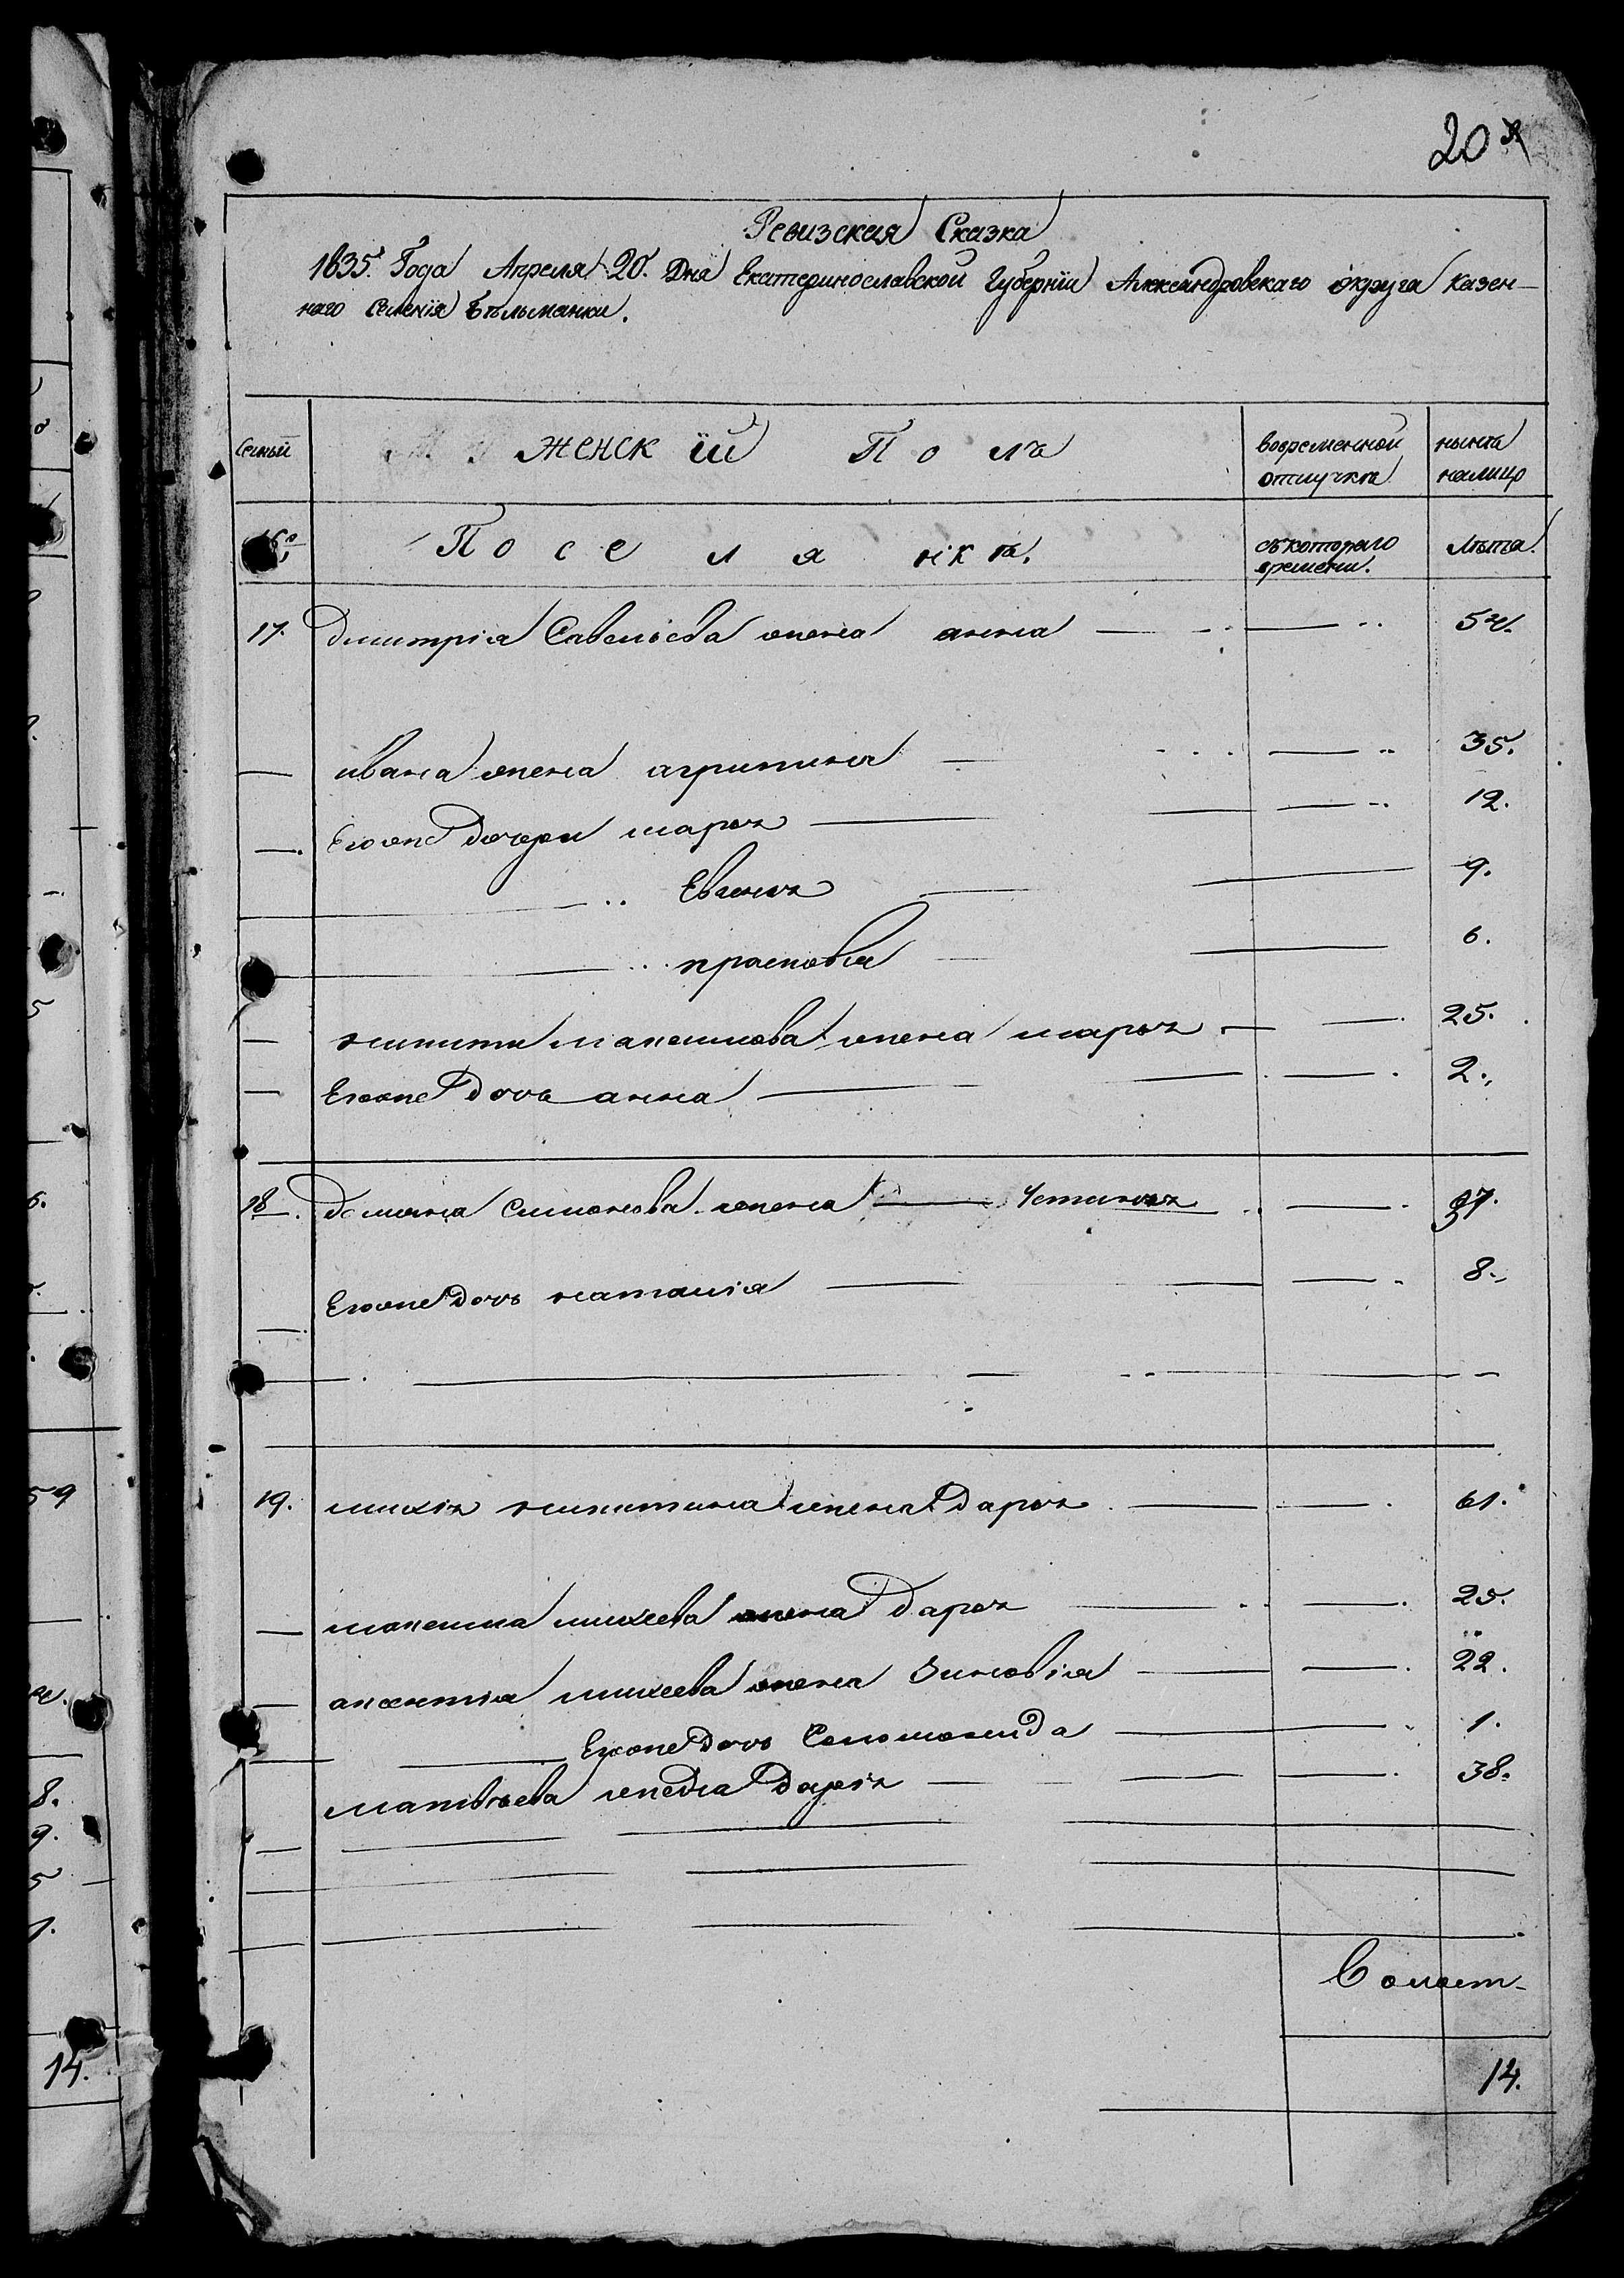 20
Ревизская Сказка
1835. Года Апреля 20. Дня Екатеринославской Губернїи Александровскаго округа казен-
наго Селенїя Бѣльманки.
Семьи женскїй Полъ вовременной отлучкѣ нынѣ налицо
Поселянкѣ. съкотораго времени. Лѣта.
17. Дмитрія Савельева жена анна 54.
ивана жена агрипина 35.
Егоже дочери марья 12.
Евгенья 9.
прасковья 6.
никиты максимова жена марья 25.
Егоже дочь анна 2.
18. демьяна Симонова жена Устинья 37.
Егоже дочь наталія 8.
19. михія никитина жена Дарья 61.
максима михеева жена Дарья 25.
аксентія михеева жена Зиновія 22.
Егоже дочь Соломонида 1.
матвѣева жена Дарія 38.
14.
59
8.
9.
5
1.
14.